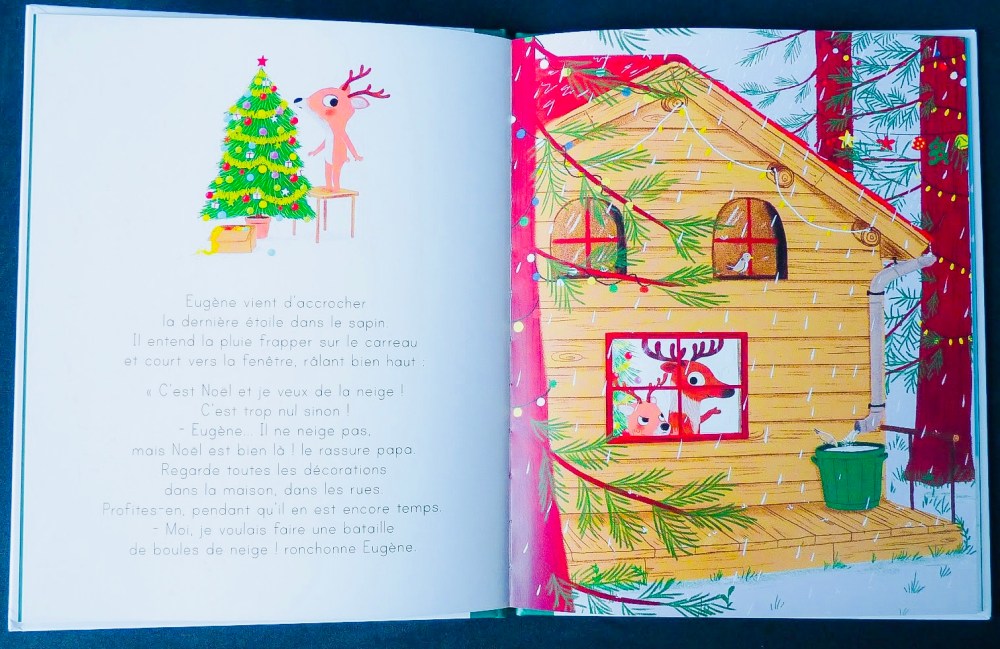 Eugène vient d'accrocher
la dernière étoile dans le sapin.
Il entend la pluie frapper sur le carreau
et court vers la fenêtre, râlant bien haut :
« C'est Noël et je veux de la neige !
C'est trop nul sinon !
- Eugène... Il ne neige pas,
mais Noël est bien là ! le rassure papa.
Regarde toutes les décorations
dans la maison, dans les rues.
Profites-en, pendant qu'il en est encore temps.
- Moi, je voulais faire une bataille
de boules de neige ! ronchonne Eugène.